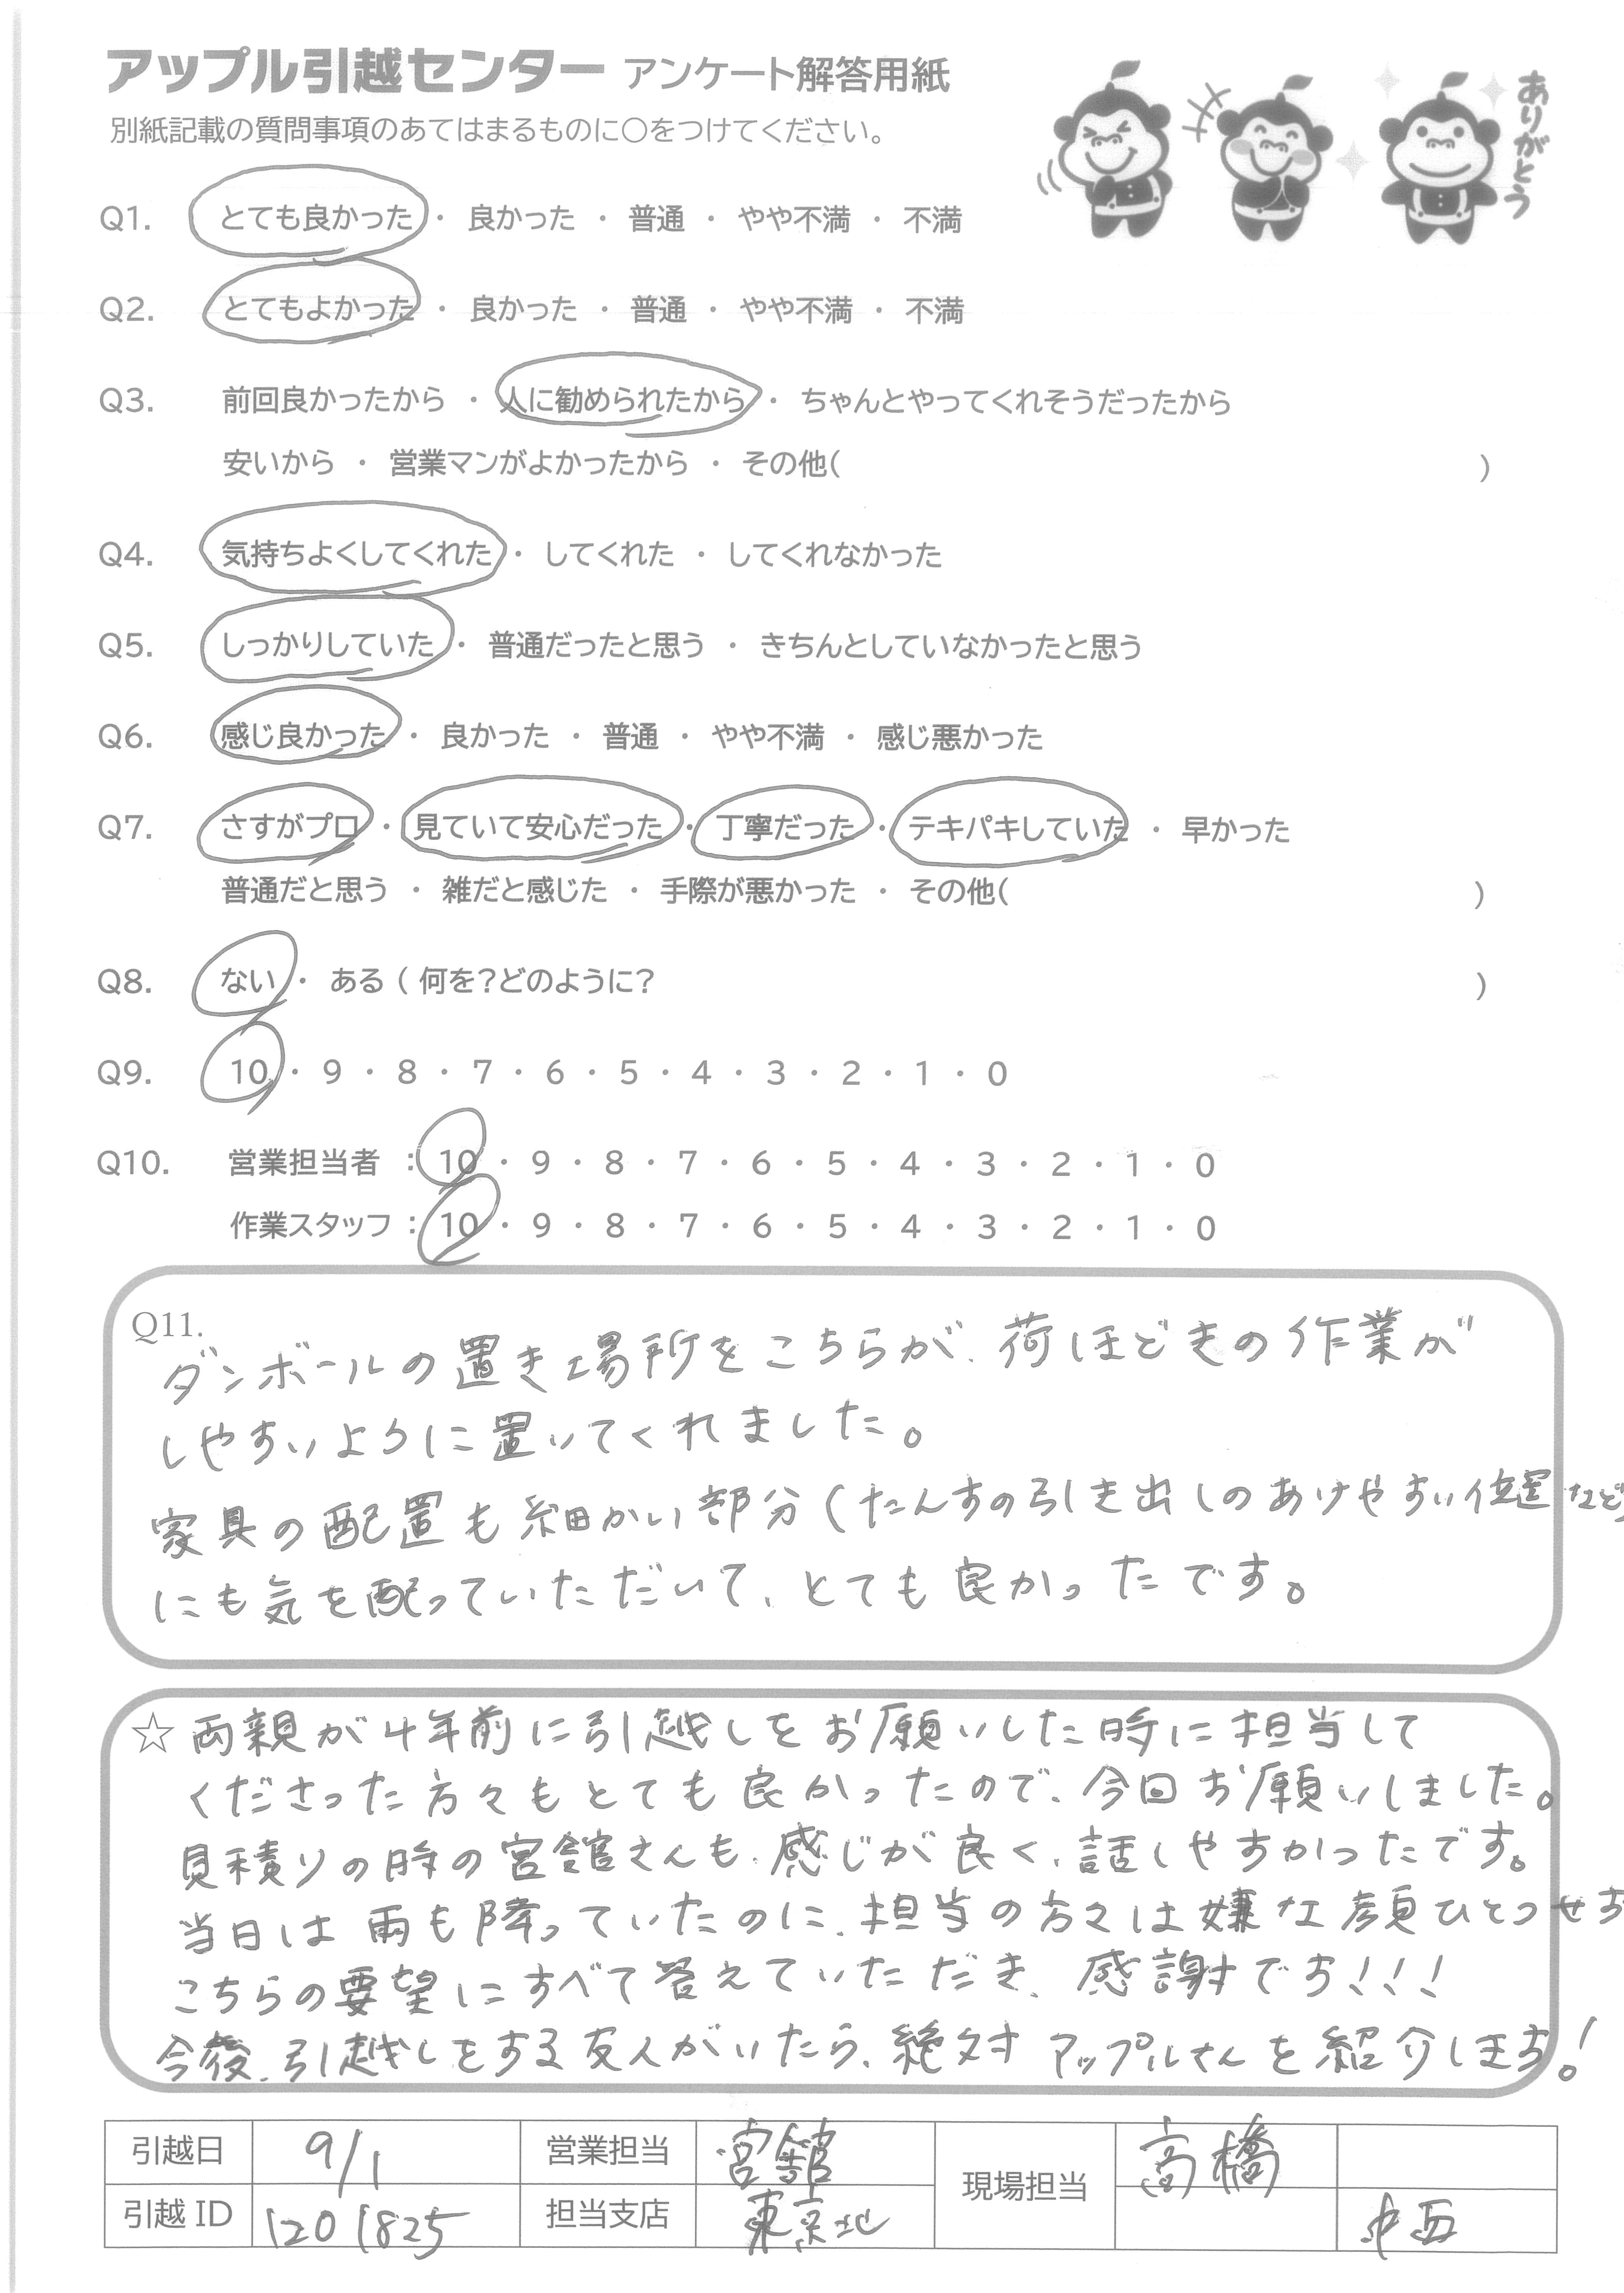 アップル引越センター アンケート解答用紙
別紙記載の質問事項のあてはまるものに○をつけてください。
ありがとう
Q1. とても良かった ・ 良かった ・ 普通 ・ やや不満 ・ 不満
Q2. とてもよかった ・ 良かった ・ 普通 ・ やや不満 ・ 不満
Q3. 前回良かったから ・ 人に勧められたから ・ ちゃんとやってくれそうだったから
安いから ・ 営業マンがよかったから ・ その他( )
Q4. 気持ちよくしてくれた ・ してくれた ・ してくれなかった
Q5. しっかりしていた ・ 普通だったと思う ・ きちんとしていなかったと思う
Q6. 感じ良かった ・ 良かった ・ 普通 ・ やや不満 ・ 感じ悪かった
Q7. さすがプロ ・ 見ていて安心だった ・ 丁寧だった ・ テキパキしていた ・ 早かった
普通だと思う ・ 雑だと感じた ・ 手際が悪かった ・ その他( )
Q8. ない ・ ある ( 何を?どのように? )
Q9. 10 ・ 9 ・ 8 ・ 7 ・ 6 ・ 5 ・ 4 ・ 3 ・ 2 ・ 1 ・ 0
Q10. 営業担当者 : 10 ・ 9 ・ 8 ・ 7 ・ 6 ・ 5 ・ 4 ・ 3 ・ 2 ・ 1 ・ 0
作業スタッフ : 10 ・ 9 ・ 8 ・ 7 ・ 6 ・ 5 ・ 4 ・ 3 ・ 2 ・ 1 ・ 0
Q11.
ダンボールの置き場所をこちらが、荷ほどきの作業が
しやすいように置いてくれました。
家具の配置も細かい部分(たんすの引き出しのあけやすい位置など)
にも気を配っていただいて、とても良かったです。
☆ 両親が4年前に引越しをお願いした時に担当して
くださった方々もとても良かったので、今回お願いしました。
見積りの時の宮舘さんも、感じが良く、話しやすかったです。
当日は雨も降っていたのに、担当の方々は嫌な顔ひとつせず
こちらの要望にすべて答えていただき、感謝です!!!
今後、引越しをする友人がいたら、絶対アップルさんを紹介します!。
引越日 9/1 営業担当 宮舘 現場担当 高橋
引越 ID 1201825 担当支店 東京北 中西